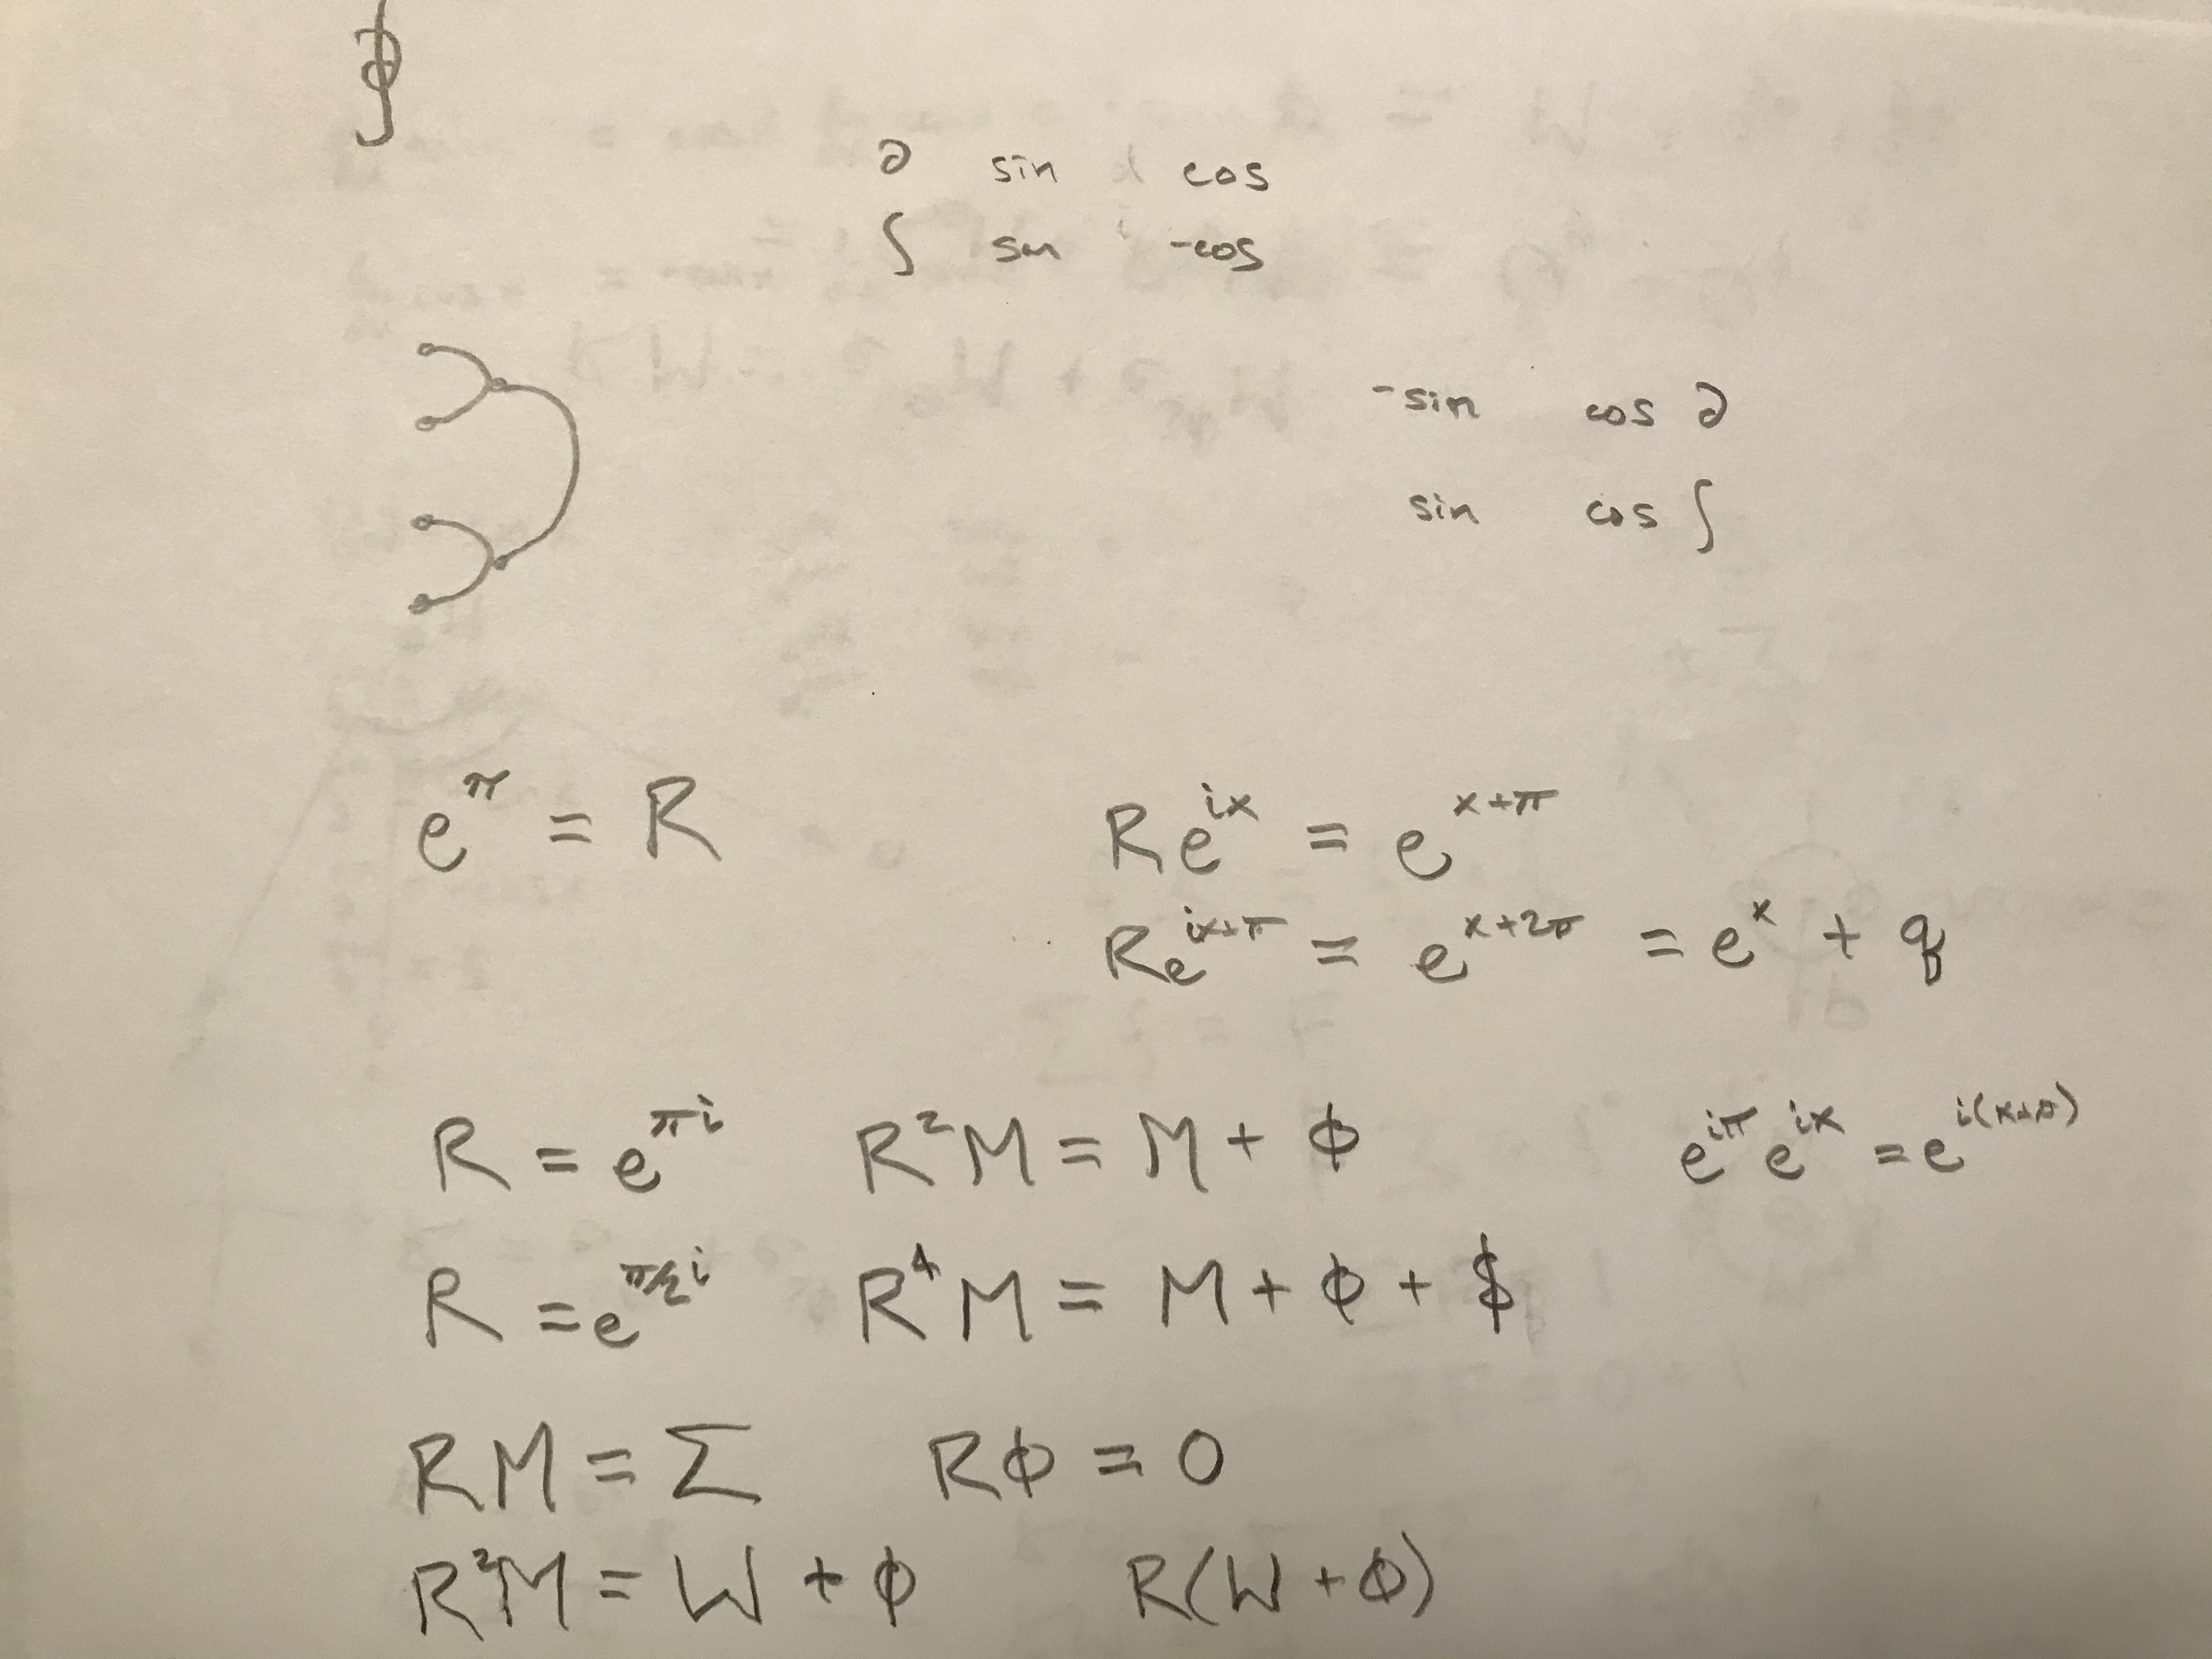 ∮
∂ sin cos
∫ sin -cos
-sin cos ∂
sin cos ∫
e^π = R
Re^{ix} = e^{x+π}
Re^{ix+π} = e^{x+2π} = e^x + q
R = e^{πi} R²M = M + ϕ e^{iπ} e^{ix} = e^{i(x+π)}
R = e^{π/2 i} R⁴M = M + ϕ + $
RM = Σ Rϕ = 0
R²M = W + ϕ R(W + ϕ)